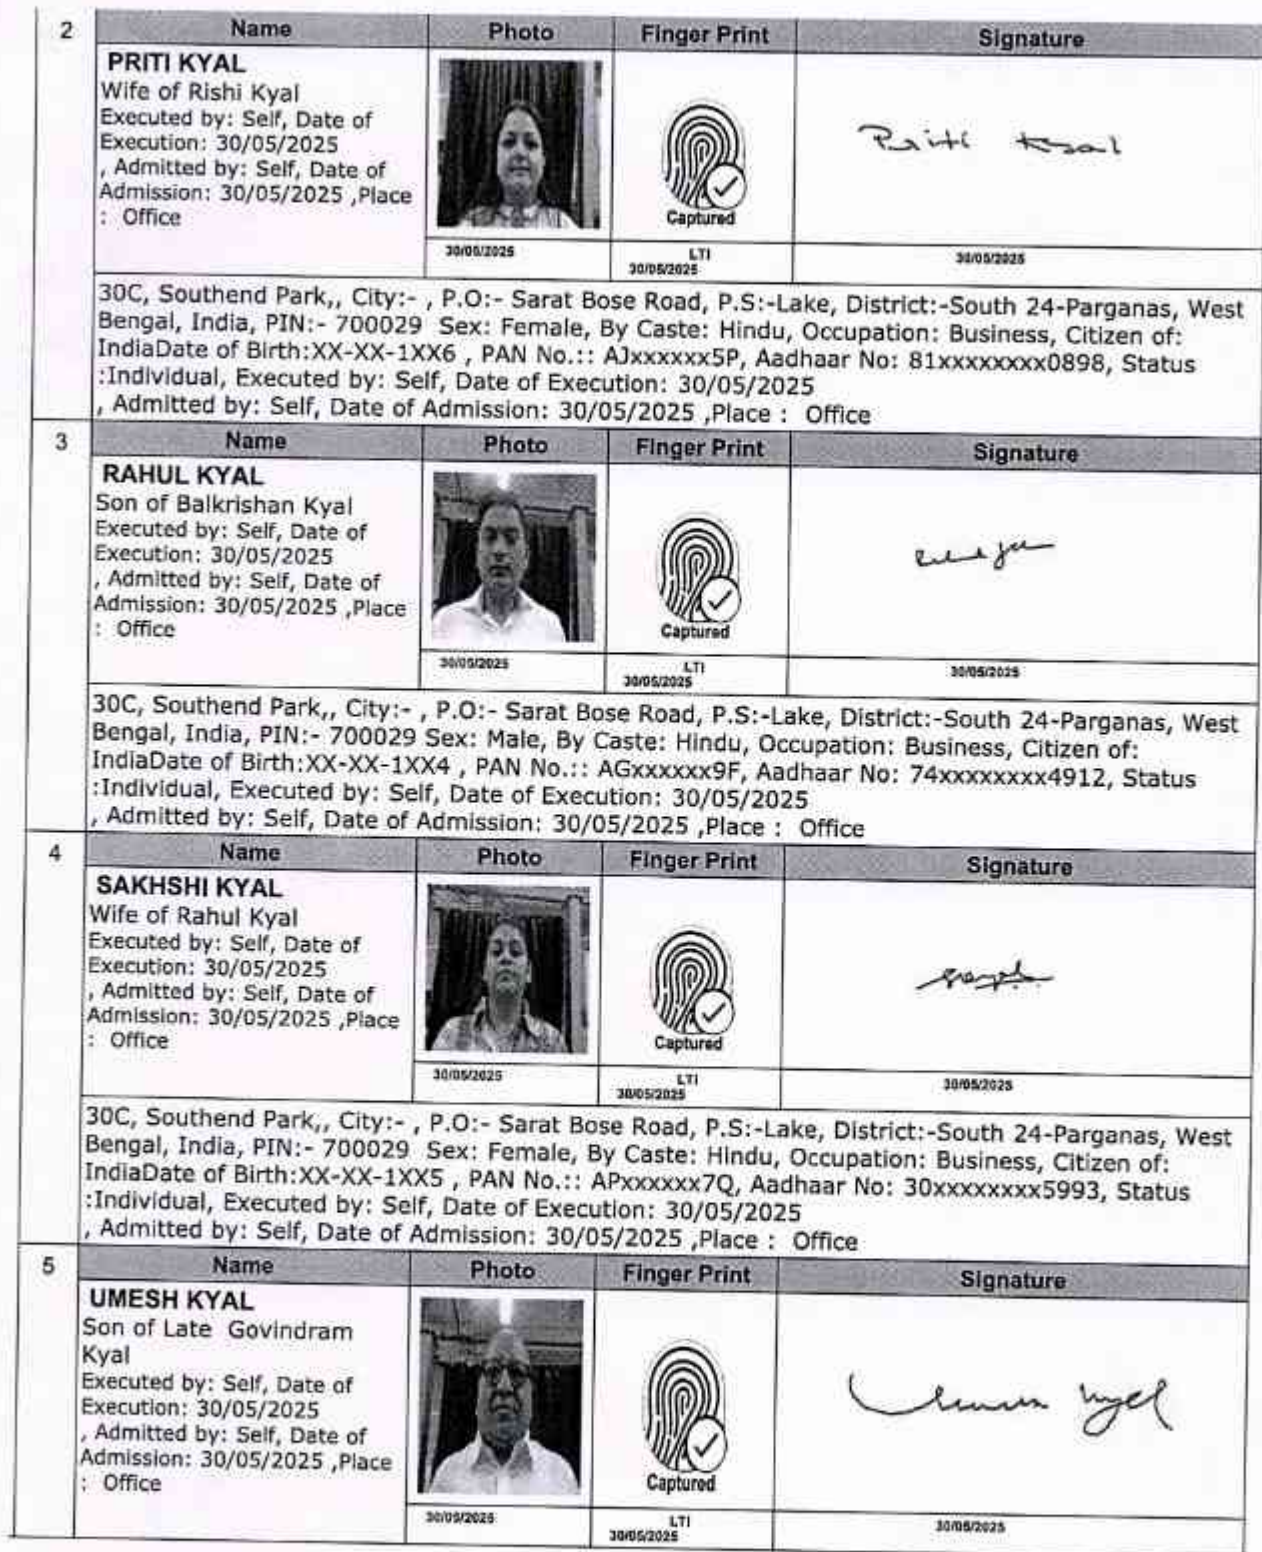 2
Name Photo Finger Print Signature
PRITI KYAL
Wife of Rishi Kyal
Executed by: Self, Date of
Execution: 30/05/2025
, Admitted by: Self, Date of
Admission: 30/05/2025 ,Place
: Office
Captured
Priti Kyal
30/05/2025 LTI 30/05/2025
30/05/2025
30C, Southend Park,, City:- , P.O:- Sarat Bose Road, P.S:-Lake, District:-South 24-Parganas, West
Bengal, India, PIN:- 700029 Sex: Female, By Caste: Hindu, Occupation: Business, Citizen of:
IndiaDate of Birth:XX-XX-1XX6 , PAN No.:: AJxxxxxx5P, Aadhaar No: 81xxxxxxxx0898, Status
:Individual, Executed by: Self, Date of Execution: 30/05/2025
, Admitted by: Self, Date of Admission: 30/05/2025 ,Place : Office
3
Name Photo Finger Print Signature
RAHUL KYAL
Son of Balkrishan Kyal
Executed by: Self, Date of
Execution: 30/05/2025
, Admitted by: Self, Date of
Admission: 30/05/2025 ,Place
: Office
Captured
30/05/2025 LTI 30/05/2025
30/05/2025
30C, Southend Park,, City:- , P.O:- Sarat Bose Road, P.S:-Lake, District:-South 24-Parganas, West
Bengal, India, PIN:- 700029 Sex: Male, By Caste: Hindu, Occupation: Business, Citizen of:
IndiaDate of Birth:XX-XX-1XX4 , PAN No.:: AGxxxxxx9F, Aadhaar No: 74xxxxxxxx4912, Status
:Individual, Executed by: Self, Date of Execution: 30/05/2025
, Admitted by: Self, Date of Admission: 30/05/2025 ,Place : Office
4
Name Photo Finger Print Signature
SAKHSHI KYAL
Wife of Rahul Kyal
Executed by: Self, Date of
Execution: 30/05/2025
, Admitted by: Self, Date of
Admission: 30/05/2025 ,Place
: Office
Captured
30/05/2025 LTI 30/05/2025
30/05/2025
30C, Southend Park,, City:- , P.O:- Sarat Bose Road, P.S:-Lake, District:-South 24-Parganas, West
Bengal, India, PIN:- 700029 Sex: Female, By Caste: Hindu, Occupation: Business, Citizen of:
IndiaDate of Birth:XX-XX-1XX5 , PAN No.:: APxxxxxx7Q, Aadhaar No: 30xxxxxxxx5993, Status
:Individual, Executed by: Self, Date of Execution: 30/05/2025
, Admitted by: Self, Date of Admission: 30/05/2025 ,Place : Office
5
Name Photo Finger Print Signature
UMESH KYAL
Son of Late Govindram
Kyal
Executed by: Self, Date of
Execution: 30/05/2025
, Admitted by: Self, Date of
Admission: 30/05/2025 ,Place
: Office
Captured
30/05/2025 LTI 30/05/2025
30/05/2025